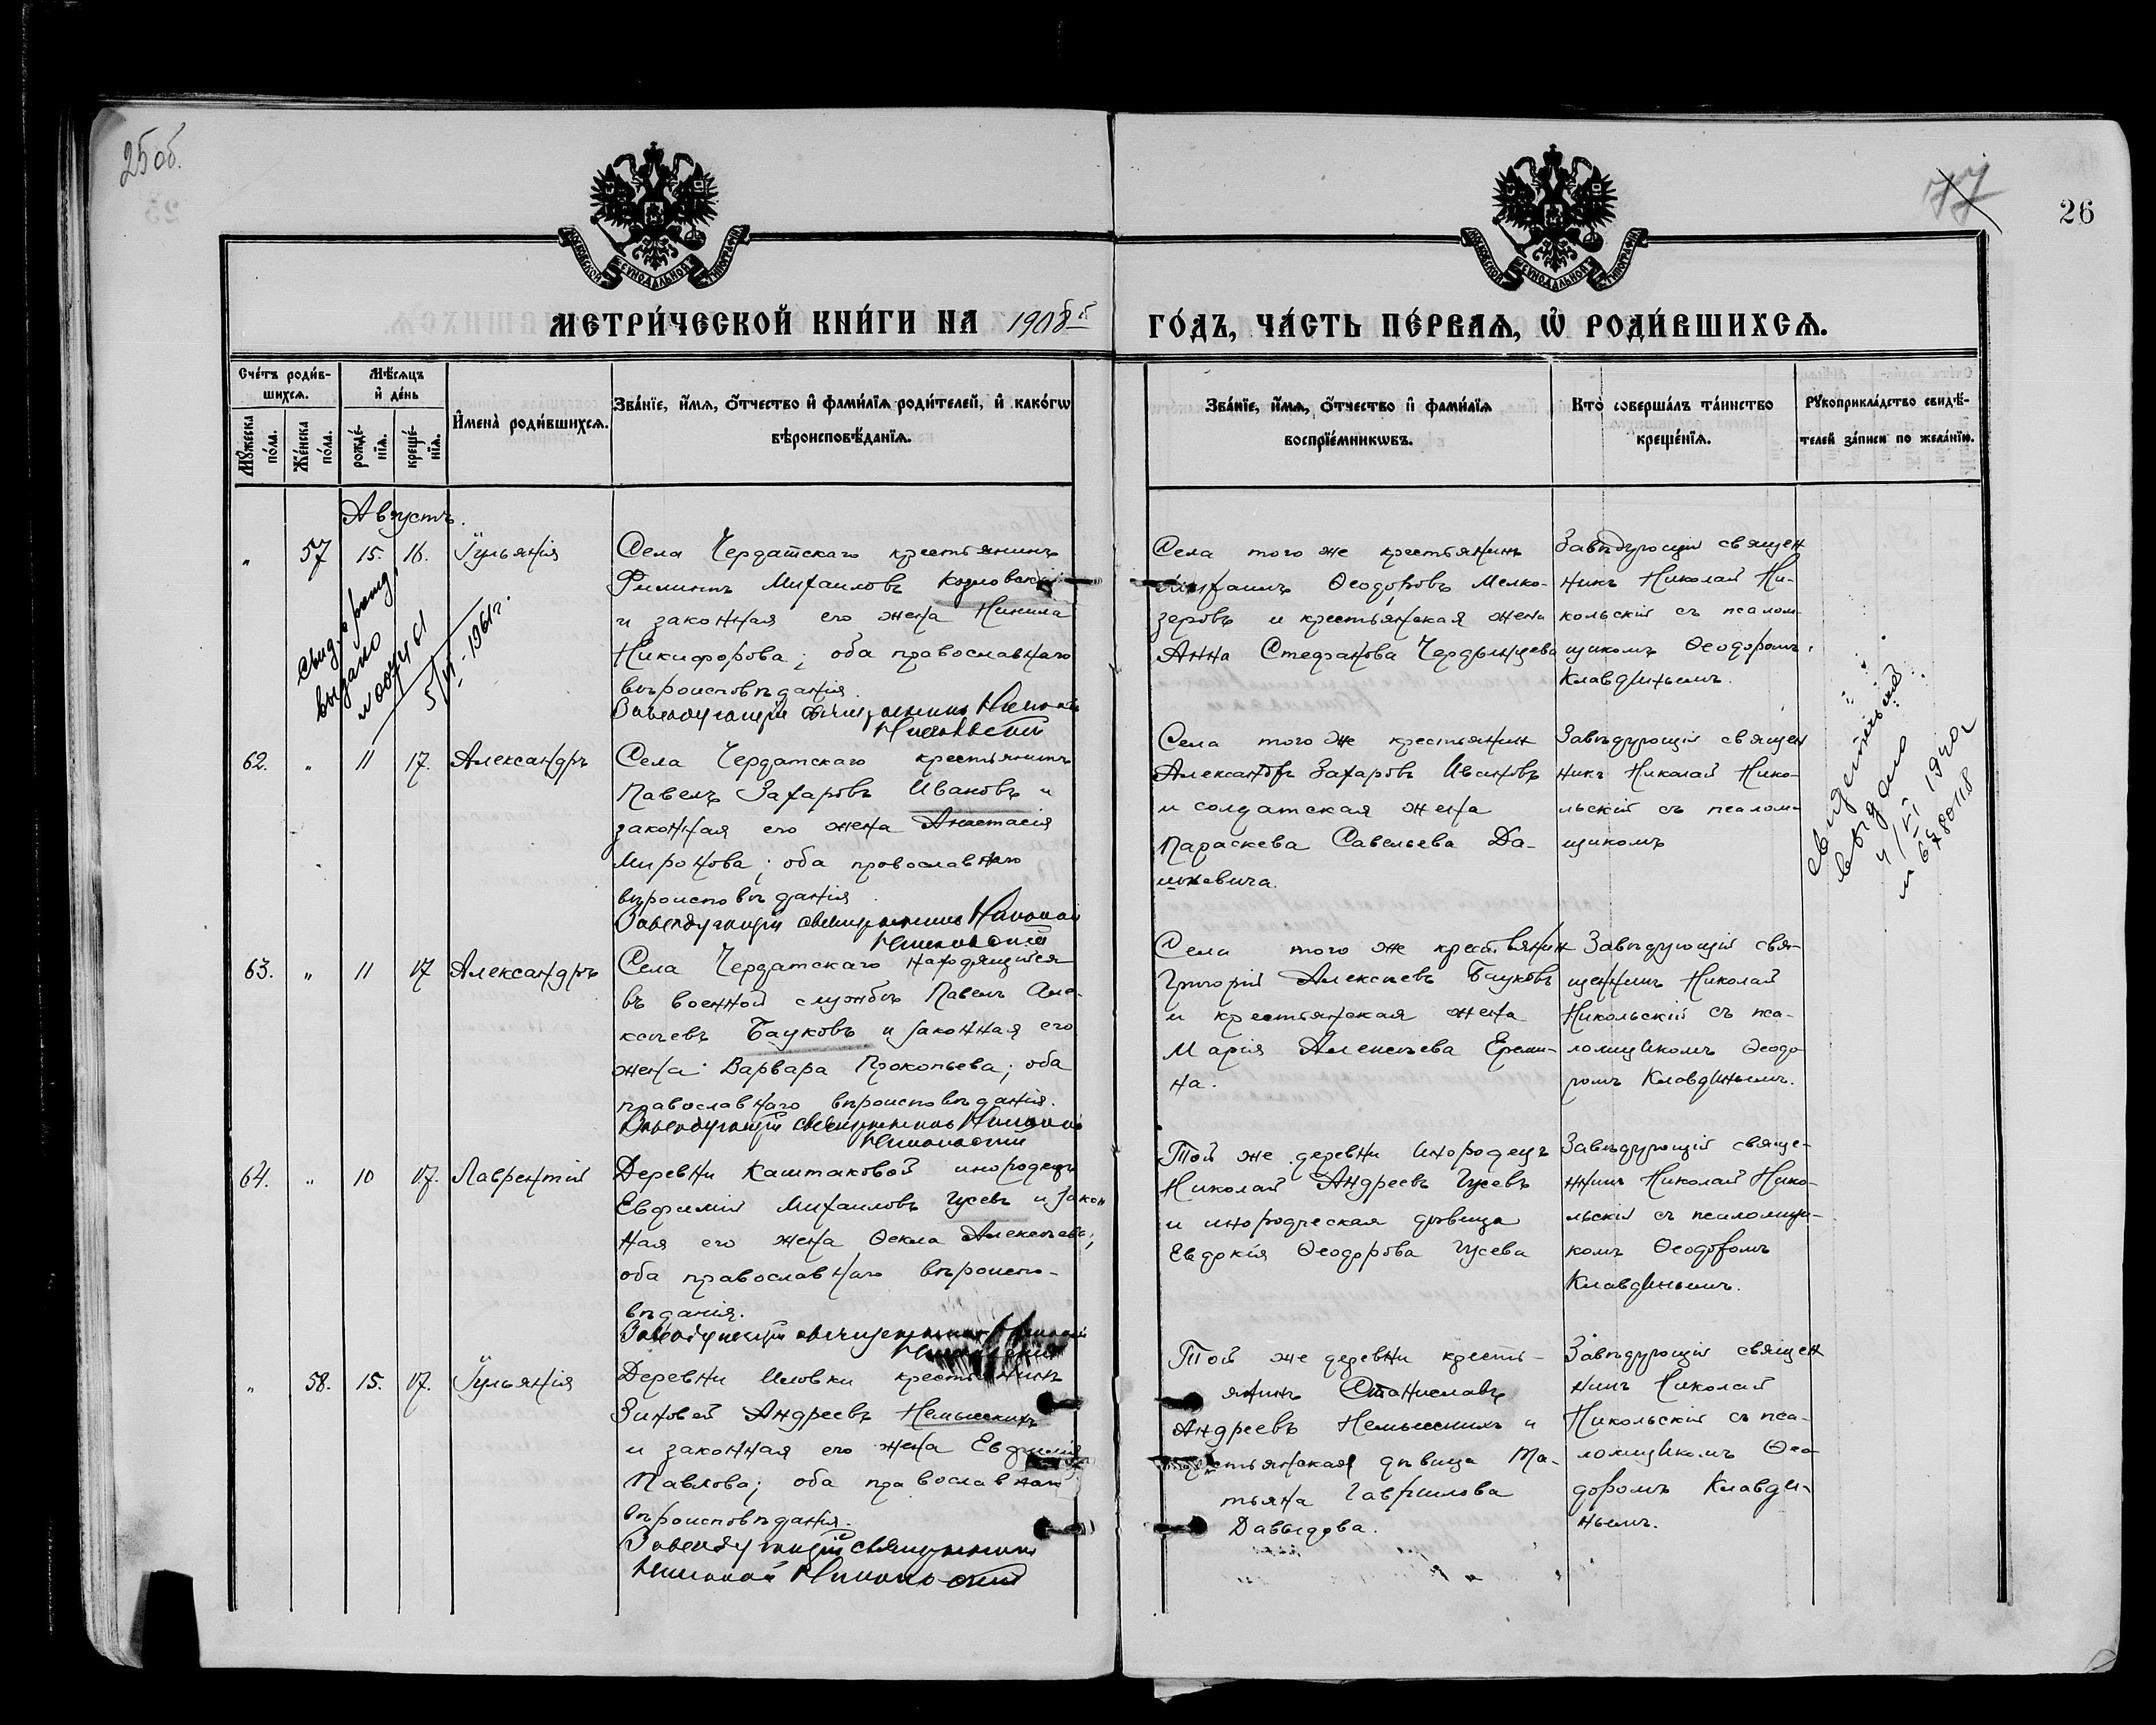 25 об.
77
26
МОСКОВСКОЙ СѴНОДАЛЬНОЙ ТИПОГРАФІИ
МОСКОВСКОЙ СѴНОДАЛЬНОЙ ТИПОГРАФІИ
МЕТРИ́ЧЕСКОЙ КНИ́ГИ НА 1908й ГО́ДЪ, ЧА́СТЬ ПЕ́РВАѦ, Ѡ҆ РОДИ́ВШИХСѦ.
Сче́тъ роди́в-
шихсѧ.
Мꙋ́жеска по́ла.
Же́нска по́ла.
Мѣ́сѧцъ
и҆ де́нь
рожде́-нїѧ.
креще́-нїѧ.
И҆мена̀ роди́вшихсѧ.
Зва́нїе, и҆́мѧ, ѻ҆́тчество и҆ фами́лїѧ роди́телей, и҆ како́гѡ
вѣроисповѣ́данїѧ.
Зва́нїе, и҆́мѧ, ѻ҆́тчество и҆ фами́лїѧ
воспрїе́мникѡвъ.
Кто̀ соверша́лъ та́инство
креще́нїѧ.
Рꙋкоприкла́дство свидѣ́-
телей за́писи по жела́нїю.
Августъ.
" 57 15. 16. Іульянія
Села Чердатскаго крестьянинъ
Филиппъ Михаиловъ Козловскій
и законная его жена Ненила
Никифорова; оба православнаго
вѣроисповѣданія.
Завѣдующій священникъ Николай
Никольскій
Села того же крестьянинъ
Михаилъ Ѳеодоровъ Мелко-
зеровъ и крестьянская жена
Анна Стефанова Чердынцева
Завѣдующій священ
никъ Николай Ни-
кольскій съ псалом-
щикомъ Ѳеодоромъ
Клавдинымъ.
Свид. о рожд.
выдано
5/VI-1961г.
62. " 11 17. Александръ
Села Чердатскаго крестьянинъ
Павелъ Захаровъ Ивановъ и
законная его жена Анастасія
Миронова; оба православнаго
вѣроисповѣданія.
Завѣдующій священникъ Николай
Никольскій
Села того же крестьянин
Александръ Захаровъ Ивановъ
и солдатская жена
Параскева Савельева Да-
шкевича.
Завѣдующій священ
никъ Николай Нико-
льскій съ псалом-
щикомъ
свидетельство
выдано
63. " 11 17 Александръ
Села Чердатскаго находящійся
въ военной службѣ Павелъ Але-
ксѣевъ Бауковъ и законная его
жена Варвара Прокопьева; оба
православнаго вѣроисповѣданія.
Завѣдующій священникъ Николай
Никольскій
Села того же крестьянин
Григорій Алексѣевъ Бауковъ
и крестьянская жена
Марія Алексѣева Ереми-
на.
Завѣдующій свя-
щенникъ Николай
Никольскій съ пса-
ломщикомъ Ѳеодо-
ромъ Клавдинымъ.
64. " 10 17. Лаврентій
Деревни Каштаковой инородецъ
Евфимій Михаиловъ Гусевъ и закон
ная его жена Ѳекла Алексѣева;
оба православнаго вѣроиспо-
вѣданія.
Завѣдующій священникъ Николай
Никольскій
Той же деревни инородецъ
Николай Андреевъ Гусевъ
и инородческая дѣвица
Евдокія Ѳеодорова Гусева
Завѣдующій свяще-
нникъ Николай Нико-
льскій съ псаломщи-
комъ Ѳеодоромъ
Клавдинымъ.
" 58. 15. 17. Іульянія
Деревни Иловки крестьянинъ
Зиновей Андреевъ Немыскихъ
и законная его жена Евфимія
Павлова; оба православнаго
вѣроисповѣданія.
Завѣдующій священникъ
Николай Никольскій
Той же деревни кресть-
янинъ Станиславъ
Андреевъ Немыскихъ и
крестьянская дѣвица Та-
тьяна Гаврилова
Давыдова.
Завѣдующій священ
никъ Николай
Никольскій съ пса-
ломщикомъ Ѳео-
доромъ Клавди-
нымъ.